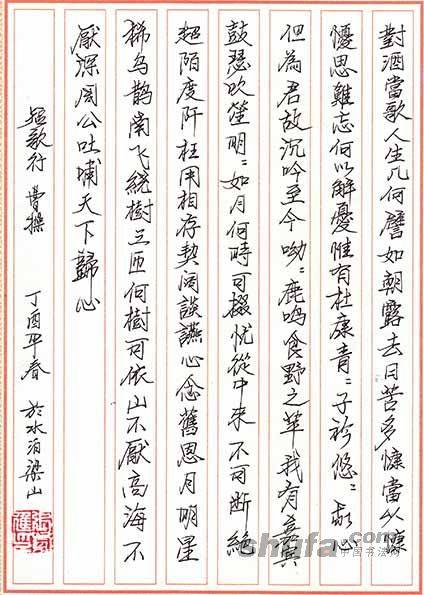 對酒當歌人生几何譬如朝露去日苦多慷當以慷
憂思難忘何以解憂惟有杜康青〻子衿悠〻我心
但為君故沉吟至今呦〻鹿鸣食野之苹我有嘉賓
鼓瑟吹笙明〻如月何時可掇忧從中来不可断絕
超陌度阡枉用相存契阔談讌心念舊恩月明星
稀乌鹊南飞繞樹三匝何樹可依山不厭高海不
厭深周公吐哺天下歸心
短歌行 曹操 丁酉年春 於水泊梁山
shufa.com
中国书法网